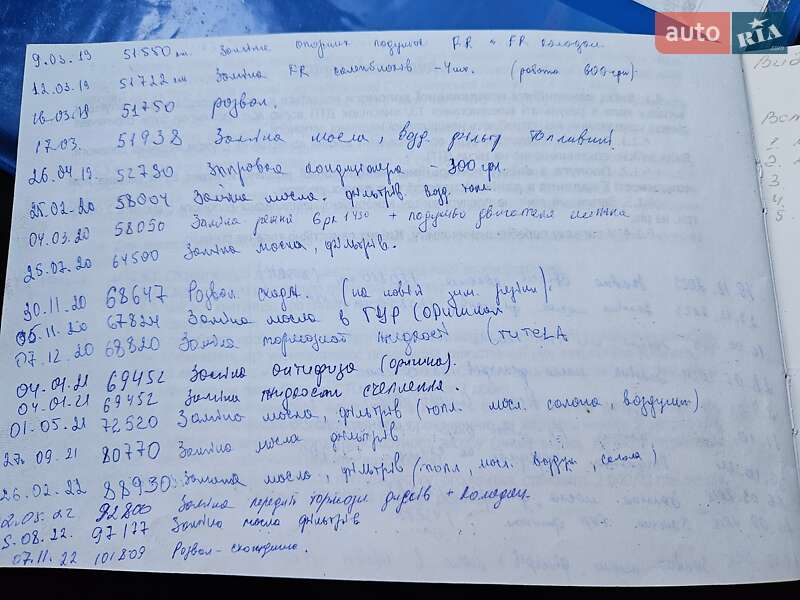 auto RIA
9.03.19 51550 км Заміна опорних подушок RR и FR колодок
12.03.19 51722 км Заміна FR сайлблоків - 4 шт. (робота 600 грн).
16.03.19 51750 розвал.
17.03. 51938 Заміна масла, возд. фильтр топливний
26.04.19 52780 Заправка кондиціонера - 300 грн.
25.02.20 58004 Заміна масла. фільтрів возд. топл
04.03.20 58050 Заміна ремня 6pk1450 + подушка двигателя
25.07.20 64500 Заміна масла, фільтрів.
30.11.20 68647 Розвал сходж. (на новій зим. резіні).
05.11.20 67824 Заміна масла в ГУР (оригинал
07.12.20 68820 Заміна тормозной жидкості (тутелА
04.01.21 69452 Заміна антифриза (оригинал).
04.01.21 69452 Заміна жидкости сцепления.
01.05.21 72520 Заміна масла, фільтрів (топл. масл. салона, воздушн)
27.09.21 80770 Заміна масла фільтрів
26.02.22 88930 Заміна масла, фільтрів (топл, масл. воздуш, салона)
2.05.22 92800 Заміна передніх тормозн дисків + колодки.
5.08.22 97177 Заміна масла фільтрів
07.11.22 101809 Розвал-сходження.
1.
2.
3
4.
5.